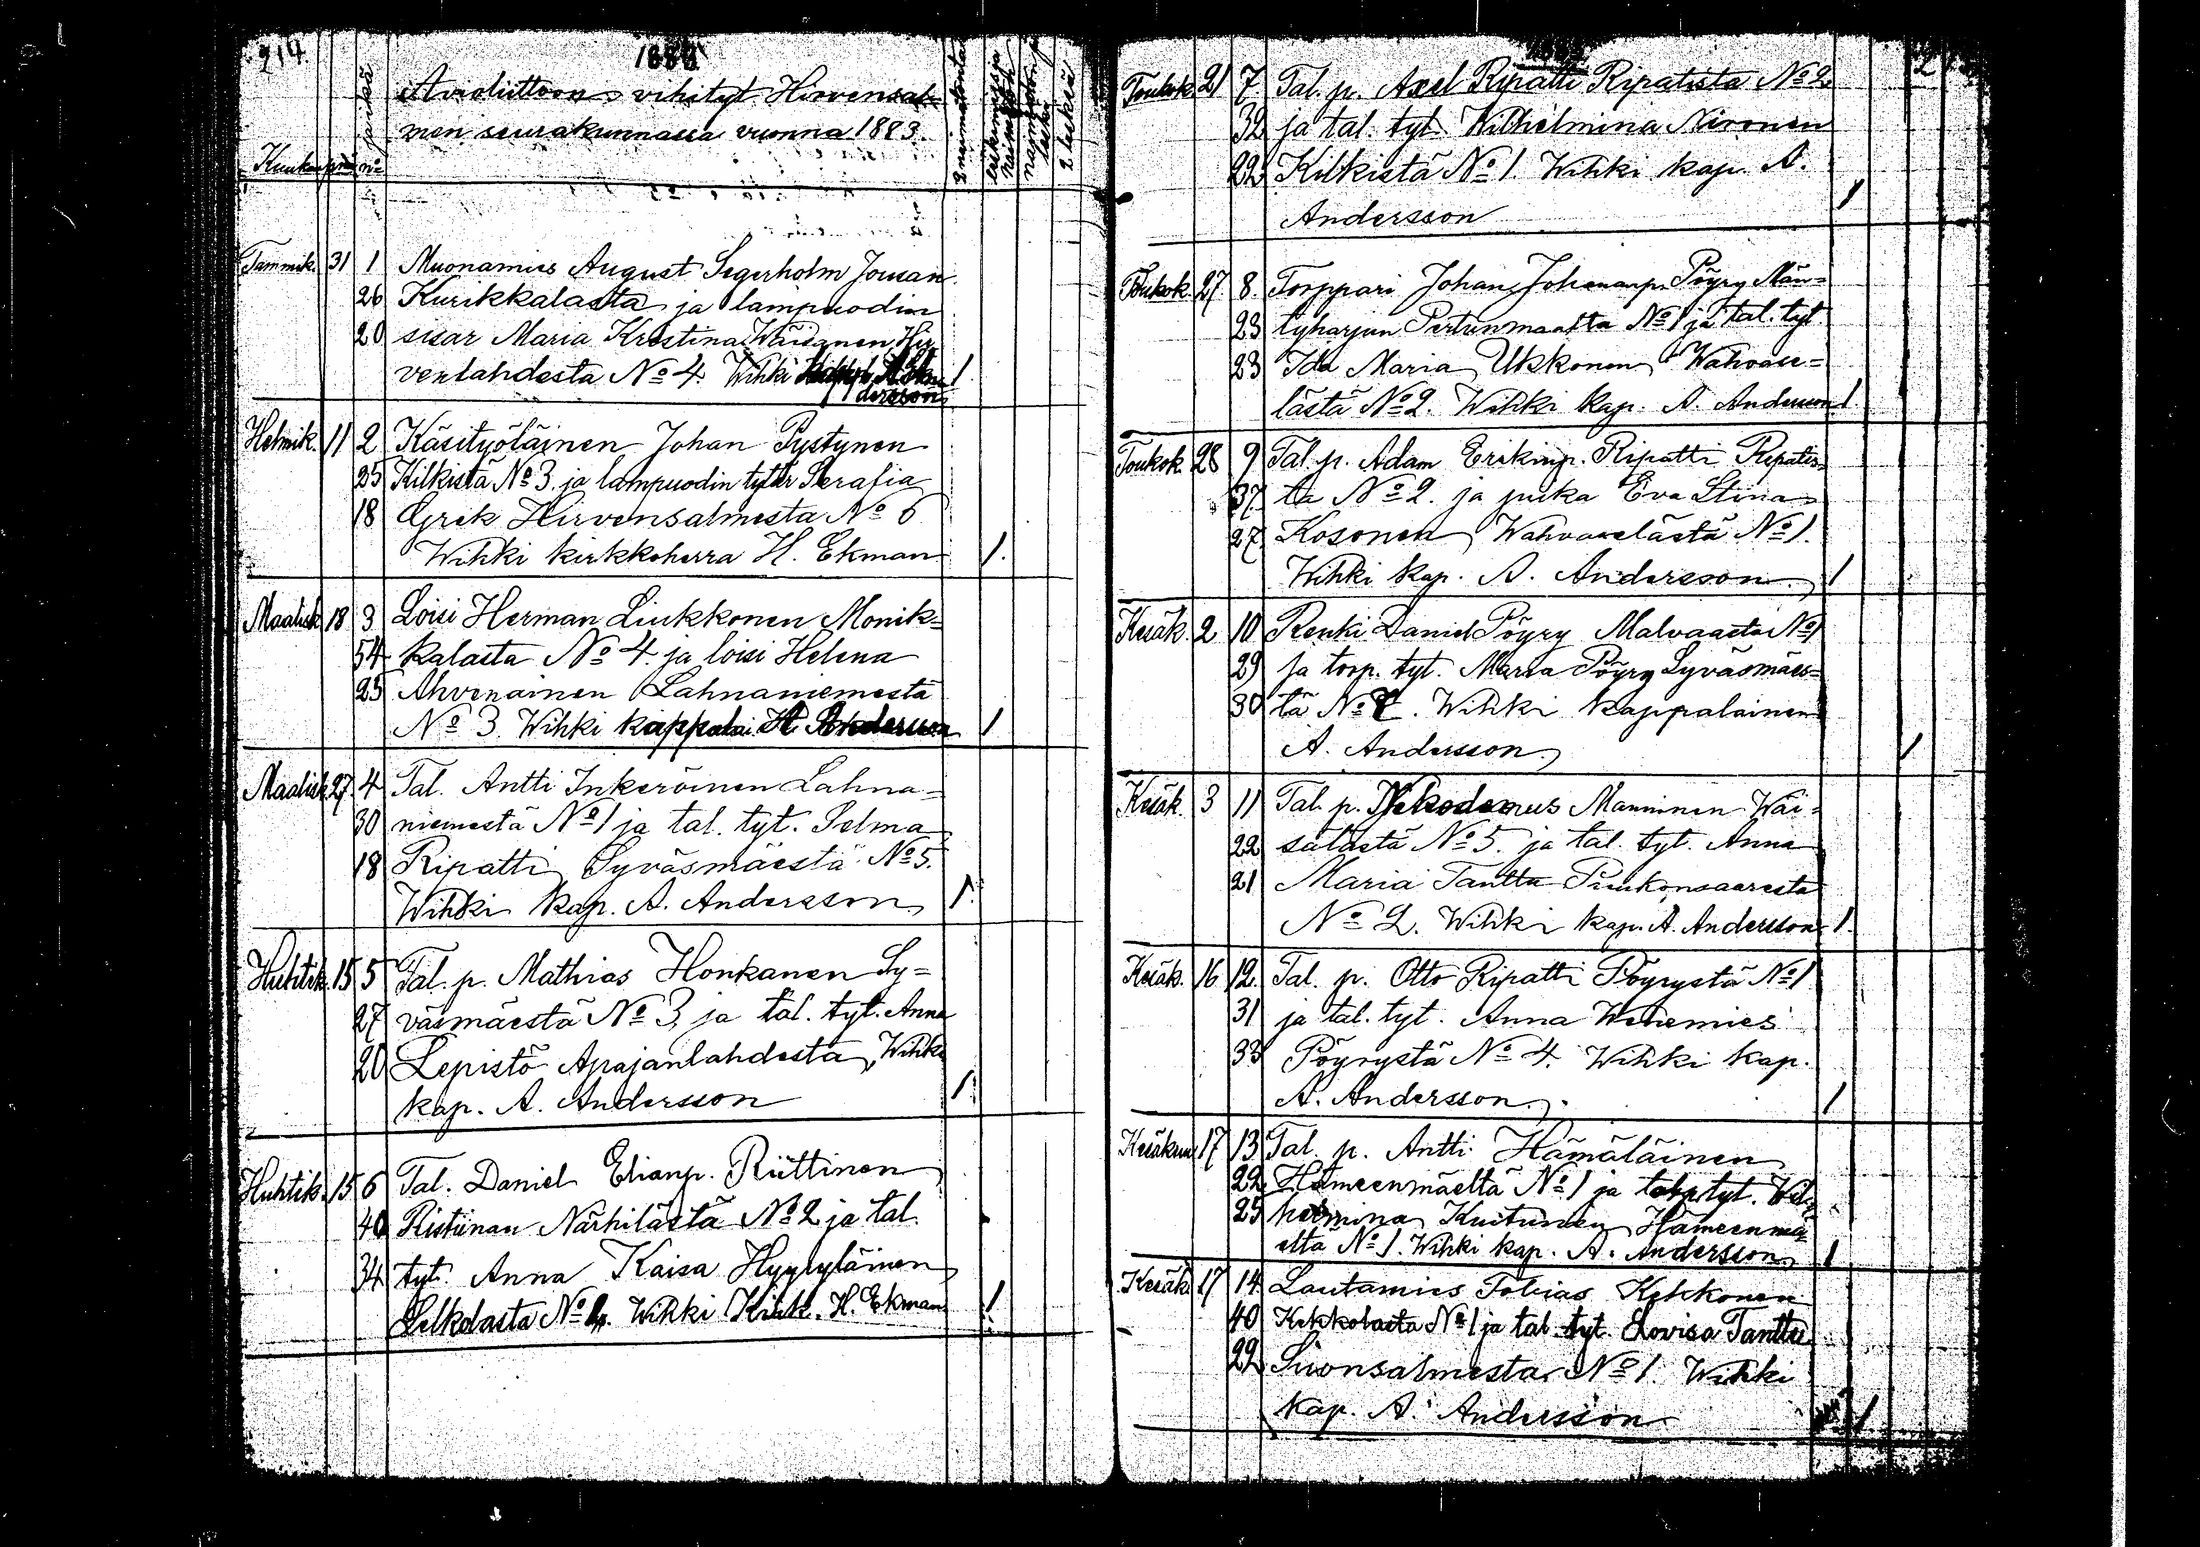 214
1883
Avioliittoon vihityt Hirvensal-
men seurakunnassa vuonna 1883.
2 leskeä
Tammik. 31 1 Muonamies August Segerholm Jousan
26 Kurikkalasta ja lampuodin
20 sisar Maria Kristina Wäisänen Hir
venlahdesta No 4. Wihki
dersson 1
Helmik. 11 2 Käsityöläinen Johan Pystynen
25 Kilkistä No 3. ja lampuodin tytär Serafia
18 Grek Hirvensalmesta No 6
Wihki kirkkoherra H. Ekman 1.
Maalisk 18 3 Loisi Herman Liukkonen Monik-
54 kalasta No 4. ja loisi Helena
25 Ahvenainen Lahnaniemestä
No 3 Wihki kappalai. A. Andersson 1
Maalisk 27. 4 Tal. Antti Inkeröinen Lahna-
30 niemestä No 1 ja tal. tyt. Selma
18 Ripatti Syväsmäestä No 5.
Wihki kap. A. Andersson 1.
Huhtik. 15 5 Tal. p. Mathias Honkanen Sy-
27 väsmäestä No 3, ja tal. tyt. Anna
20 Lepistö Apajanlahdesta, Wihki
kap. A. Andersson 1.
Huhtik. 15 6 Tal. Daniel Elianp. Riittinen
40 Ristiinan Närhilästä No 2 ja tal.
34 tyt. Anna Kaisa Hyyryläinen
Selkolasta No Wihki Kirk. H. Ekman 1
Toukok. 21 7 Tal. p. Axel Ripatti Ripatista No 2
32 ja tal. tyt. Wilhelmina Nironen
22 Kilkistä No 1. Wihki kap. A.
Andersson 1
Toukok. 27. 8. Torppari Johan Johananp. Pöyry Män-
23 tyharjun Pertunmaalta No 1 ja tal. tyt.
23 Ida Maria Ukkonen Wahvase-
lästä No 2. Wihki kap. A. Andersson 1
Toukok. 28 9 Tal. p. Adam Erikinp. Ripatti Ripatis-
37 ta No 2. ja piika Eva Stina
27. Kosonen Wahvaselästä No 1.
Wihki kap. A. Andersson. 1
Kesäk. 2 10 Renki Daniel Pöyry Malvaasta No 1
29 ja torp. tyt. Maria Pöyry Syväsmäes-
30 tä No Wihki kappalainen
A. Andersson 1
Kesäk. 3 11 Tal. p. Nikodemus Manninen Wäi-
22 sälästä No 5. ja tal. tyt. Anna
21 Maria Tanttu Puukonsaaresta
No 2. Wihki kap. A. Andersson 1.
Kesäk. 16 12. Tal. p. Otto Ripatti Pöyrystä No 1
31 ja tal. tyt. Anna Wenemies
33 Pöyrystä No 4. Wihki kap.
A. Andersson. 1
Kesäkuu 17 13 Tal. p. Antti Hämäläinen
22 Hämeenmäeltä No 1 ja tyt. Wil-
25 helmina Kuitunen Hämeenmä-
eltä No 1. Wihki kap. A. Andersson 1
Kesäk. 17 14 Lautamies Tobias Kekkonen
40 Kekkolasta No 1 ja tal. tyt. Lovisa Tanttu
22 Suonsalmesta No 1. Wihki
kap. A. Andersson 1